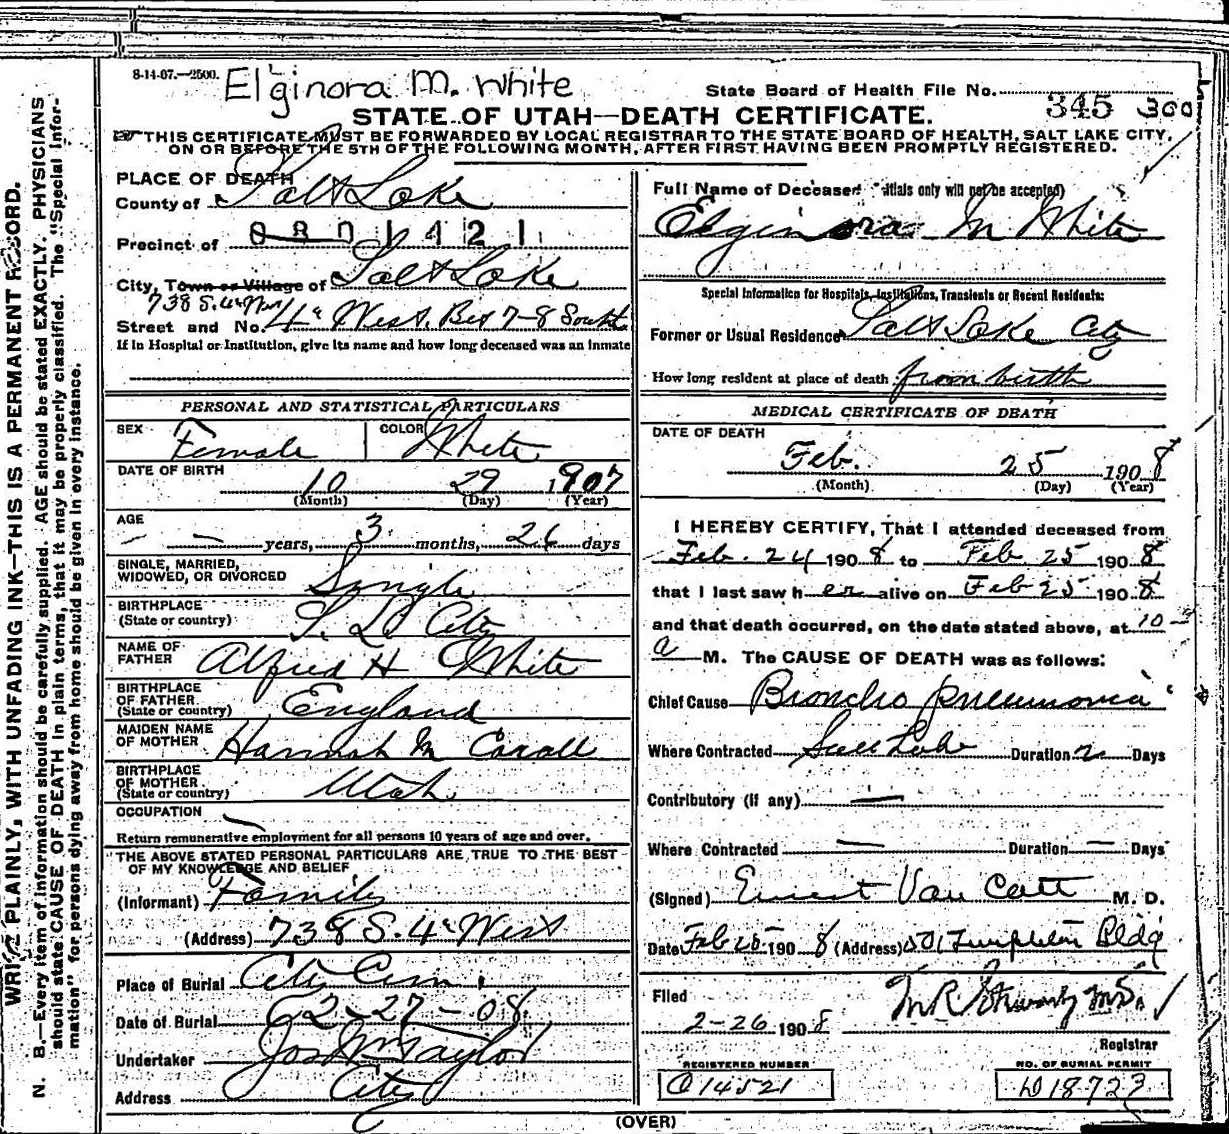 8-14-07.—2500.
Elginora M. White
State Board of Health File No. 345 300
STATE OF UTAH—DEATH CERTIFICATE.
THIS CERTIFICATE MUST BE FORWARDED BY LOCAL REGISTRAR TO THE STATE BOARD OF HEALTH, SALT LAKE CITY,
ON OR BEFORE THE 5TH OF THE FOLLOWING MONTH, AFTER FIRST HAVING BEEN PROMPTLY REGISTERED.
WRITE PLAINLY, WITH UNFADING INK—THIS IS A PERMANENT RECORD.
N. B.—Every item of information should be carefully supplied. AGE should be stated EXACTLY. PHYSICIANS
should state CAUSE OF DEATH in plain terms, that it may be properly classified. The "Special Infor-
mation" for persons dying away from home should be given in every instance.
PLACE OF DEATH
County of Salt Lake
Precinct of 0801421
City, Town or Village of Salt Lake
738 S. 4th West
Street and No. 4th West. Bet 7-8 South
If in Hospital or Institution, give its name and how long deceased was an inmate
PERSONAL AND STATISTICAL PARTICULARS
SEX Female COLOR White
DATE OF BIRTH 10 29 1907
(Month) (Day) (Year)
AGE — — years, 3 months, 26 days
SINGLE, MARRIED,
WIDOWED, OR DIVORCED Single
BIRTHPLACE
(State or country) S. L. City
NAME OF
FATHER Alfred H White
BIRTHPLACE
OF FATHER
(State or country) England
MAIDEN NAME
OF MOTHER Hannah M Caroll
BIRTHPLACE
OF MOTHER
(State or country) Utah
OCCUPATION —
Return remunerative employment for all persons 10 years of age and over.
THE ABOVE STATED PERSONAL PARTICULARS ARE TRUE TO THE BEST
OF MY KNOWLEDGE AND BELIEF
(Informant) Family
(Address) 738 S. 4th West
Place of Burial City Cem.
Date of Burial 2-27-08
Undertaker Jos Wm Taylor
Address City
Full Name of Deceased initials only will not be accepted)
Elginora M White
Special Information for Hospitals, Institutions, Transients or Recent Residents:
Former or Usual Residence Salt Lake City
How long resident at place of death from birth
MEDICAL CERTIFICATE OF DEATH
DATE OF DEATH
Feb. 25 1908
(Month) (Day) (Year)
I HEREBY CERTIFY, That I attended deceased from
Feb. 24 1908 to Feb. 25 1908
that I last saw her alive on Feb 25 1908
and that death occurred, on the date stated above, at 10
a M. The CAUSE OF DEATH was as follows:
Chief Cause Broncho pneumonia
Where Contracted Salt Lake Duration 2 Days
Contributory (if any) —
Where Contracted — Duration — Days
(Signed) Ernest Van Cott M. D.
Date Feb 25 1908 (Address) 501 Templeton Bldg
Filed
2-26 1908
Registrar
REGISTERED NUMBER
O 14521
NO. OF BURIAL PERMIT
D 18723
(OVER)